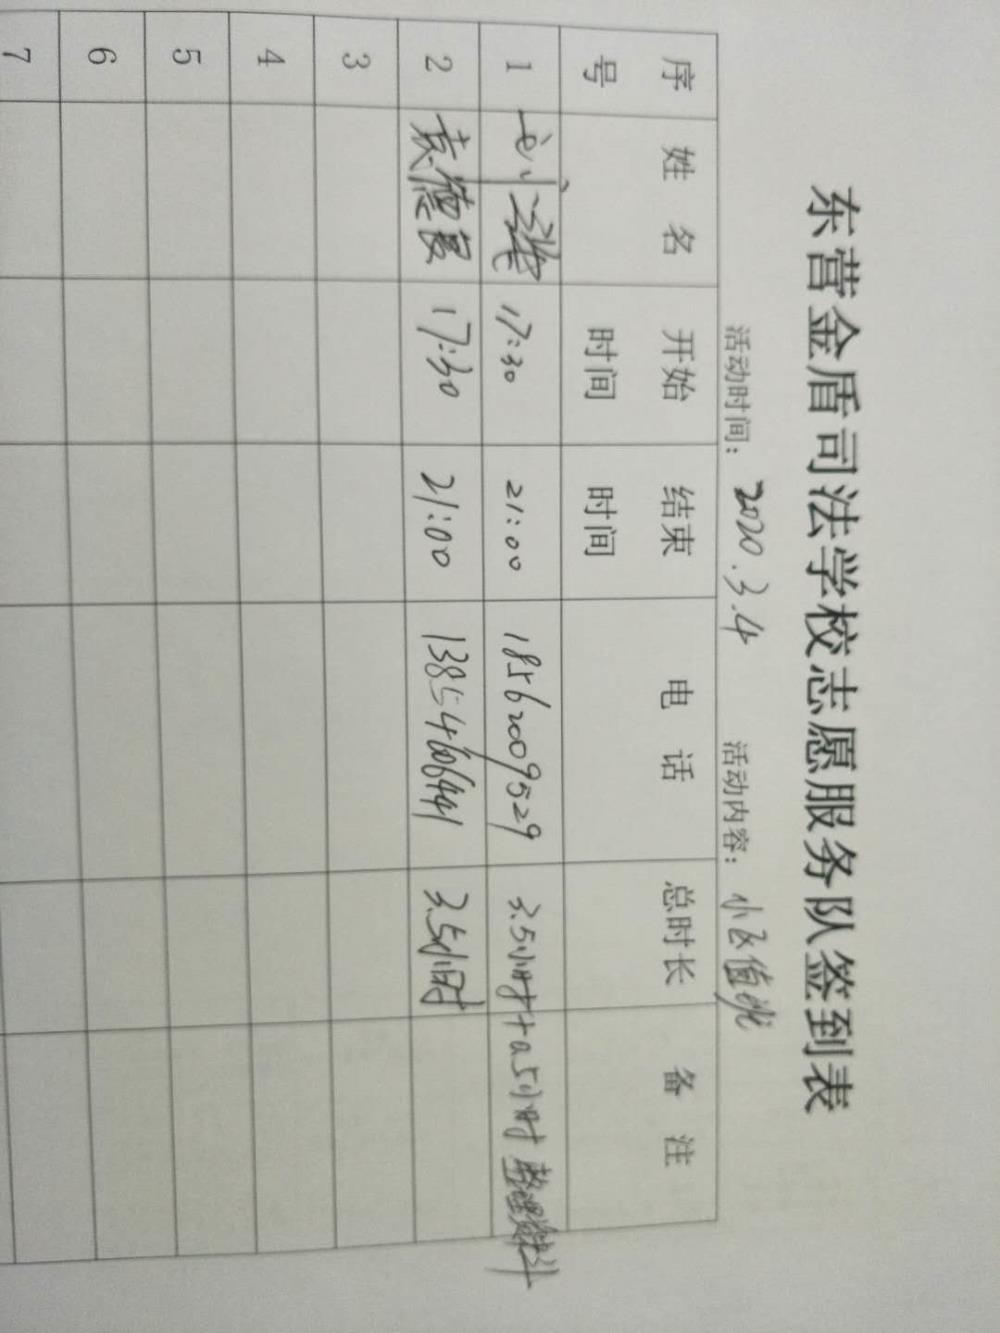 东营金盾司法学校志愿服务队签到表
活动时间：2020.3.4 活动内容：小区值班
序号 姓名 开始时间 结束时间 电话 总时长 备注
1 17:30 21:00 18562009529 3.5小时+0.5小时 整理资料
2 袁德良 17:30 21:00 13854606441 3.5小时
3
4
5
6
7